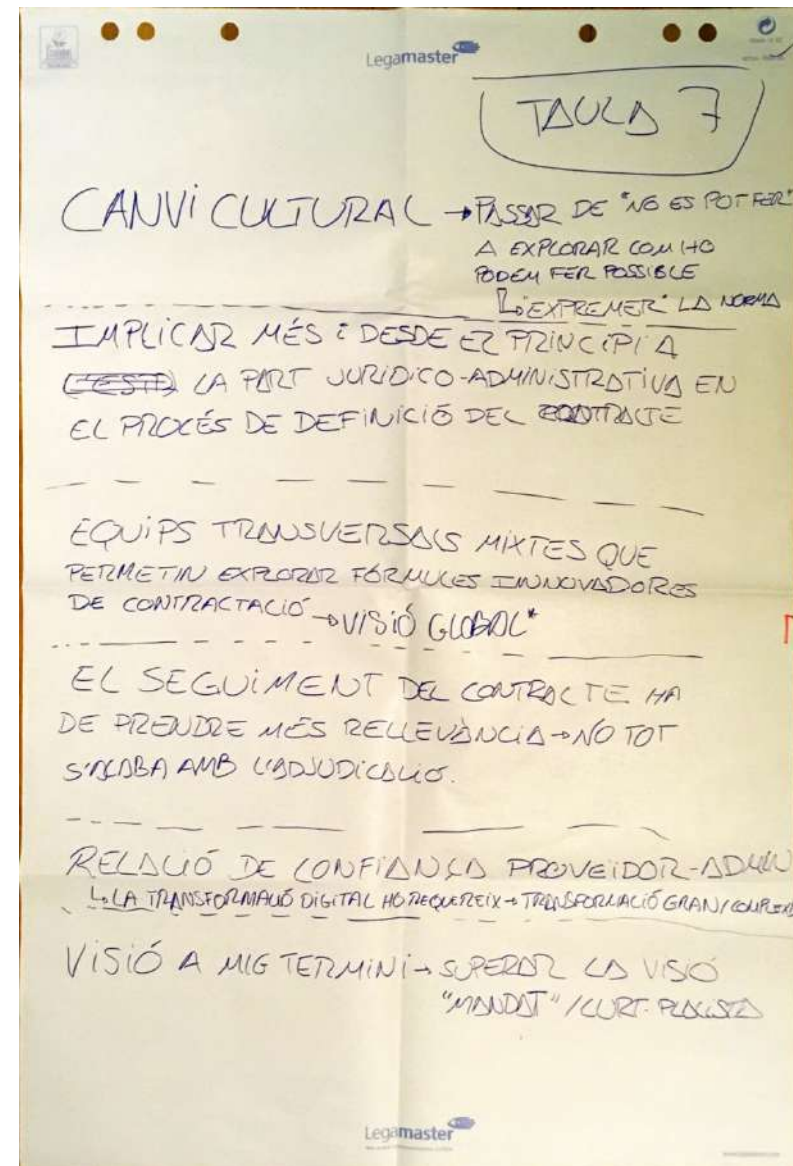 Legamaster
TAULA 7
CANVI CULTURAL → PASSAR DE "NO ES POT FER"
A EXPLORAR COM HO
PODEM FER POSSIBLE
↳ "EXPREMER" LA NORMA
IMPLICAR MÉS i DESDE EL PRINCIPI A
LA PART JURÍDICO-ADMINISTRATIVA EN
EL PROCÉS DE DEFINICIÓ DEL CONTRACTE
EQUIPS TRANSVERSALS MIXTES QUE
PERMETIN EXPLORAR FÓRMULES INNOVADORES
DE CONTRACTACIÓ → VISIÓ GLOBAL*
EL SEGUIMENT DEL CONTRACTE HA
DE PRENDRE MÉS RELLEVÀNCIA → NO TOT
S'ACABA AMB L'ADJUDICACIÓ.
RELACIÓ DE CONFIANÇA PROVEÏDOR-ADMIN
↳ LA TRANSFORMACIÓ DIGITAL HO REQUEREIX → TRANSFORMACIÓ GRAN/COMPLEXA
VISIÓ A MIG TERMINI → SUPERAR LA VISIÓ
"MANDAT" / CURT-PLACISTA
Legamaster